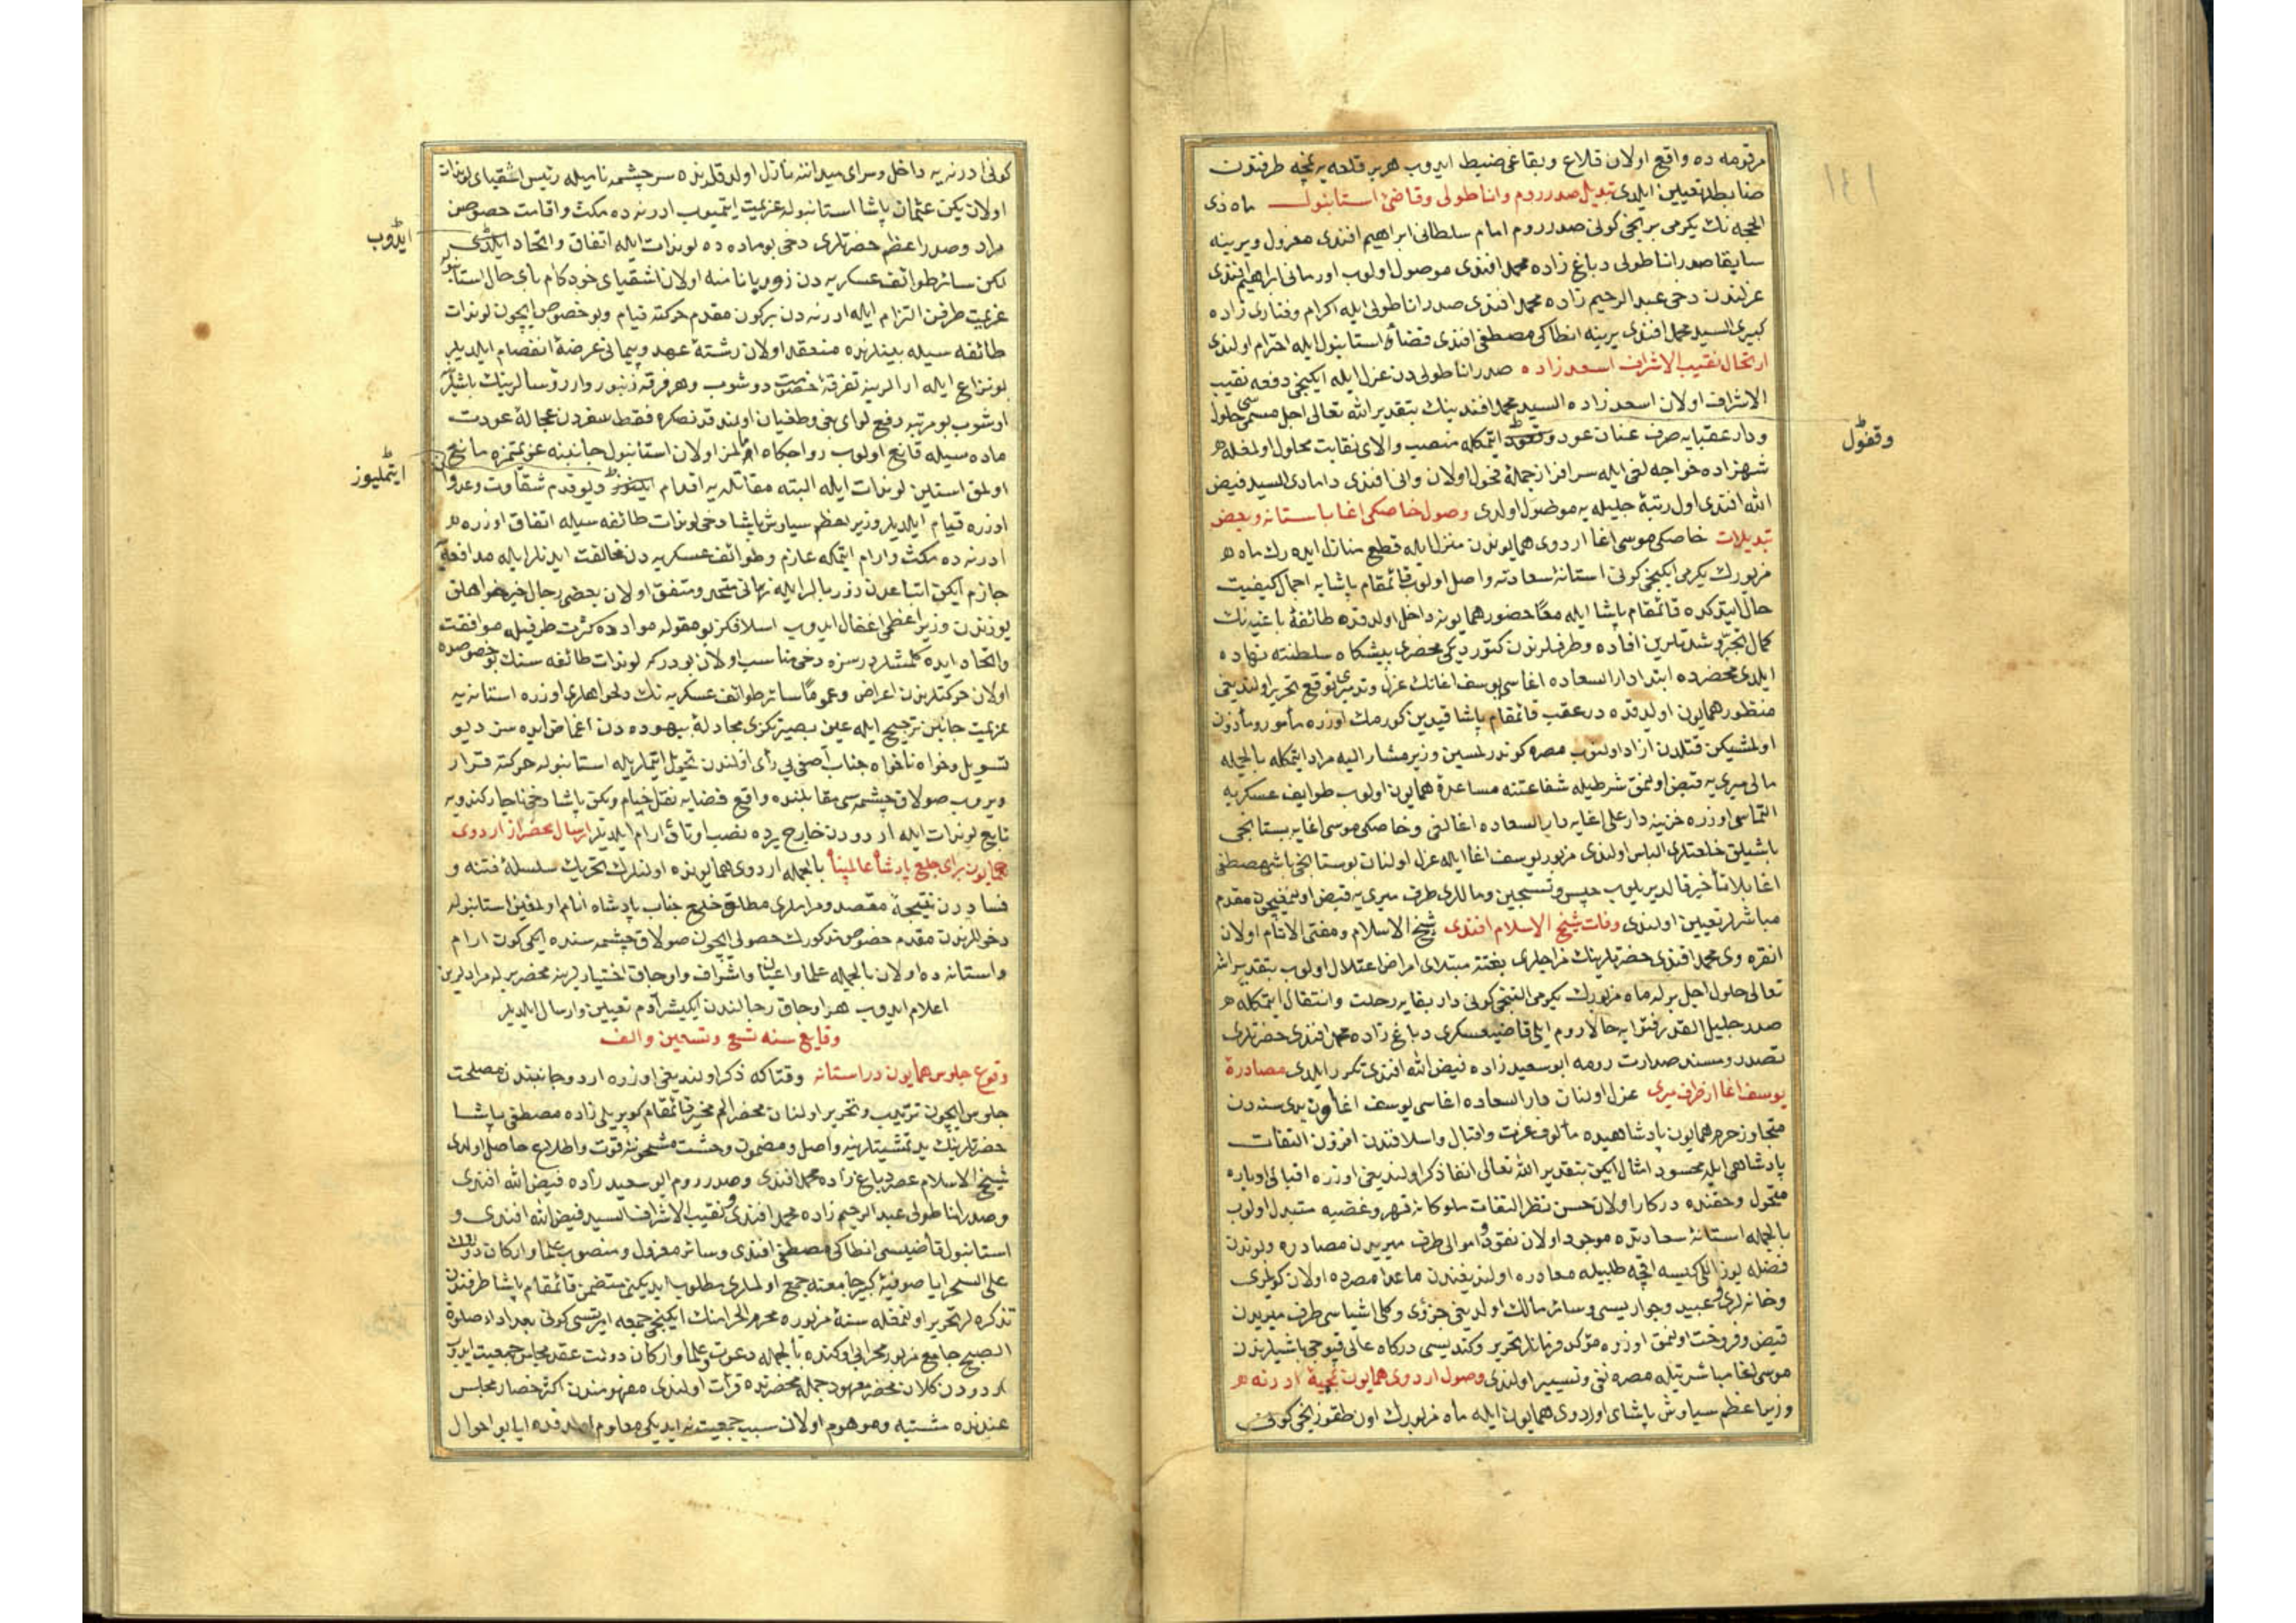 مرقومه ده واقع اولان قلاع وبقاعی ضبط ایدوب هر بر قلعه یه نیجه طرفندن
ضابطلر تعیین ایلدی تبدیل صدر روم واناطولی وقاضئ استانبول ماه ذی
الحجه نك یکرمی برنجی کونی صدر روم امام سلطانی ابراهیم افندی معزول ویرینه
سابقا صدر اناطولی دباغ زاده محمد افندی موصول اولوب اورمانی ابراهیم افندی
عزلندن دخی عبد الرحیم زاده محمد افندی صدر اناطولی ایله اکرام وفناری زاده
کبیری السید محمد افندی یرینه انطاکی مصطفی افندی قضاء استانبول ایله احترام اولندی
ارتحال نقیب الاشراف اسعد زاده صدر اناطولی دن عزل ایله ایکنجی دفعه نقیب
الاشراف اولان اسعد زاده السید محمد افندینك بتقدیر الله تعالی اجل مسمی سی حلول
ودار عقبایه صرف عنان عود وقفول ایتمکله منصب والای نقابت محلول اولمغله
شهزاده خواجه لغی ایله سرافراز جمله فحول اولان وانی افندی دامادی السید فیض
الله افندی اول رتبۀ جلیله یه موصول اولدی وصول خاصکی اغا باستانه وبعض
تبدیلات خاصکی موسی اغا اردوی همایوندن منزل ایله قطع منازل ایده رك ماه
مزبورك یکرمی ایکنجی کونی استانۀ سعادته واصل اولوب قائمقام پاشایه اجمال کیفیت
حال ایتدکده قائمقام پاشا ایله معًا حضور همایونه داخل اولدقده طائفۀ باغیه نك
کمال تجبر وشدتلرین افاده وطرفلرندن کتوردیکی محضری پیشکاه سلطنته نهاده
ایلدی محضرده ابتدا دار السعاده اغاسی یوسف اغانك عزل وتدمیری توقع تحریر اولندیغی
منظور همایون اولدقده در عقب قائمقام پاشا قیدین کورمك اوزره مأمور ومأذون
اولمشیکن قتلدن ازاد اولنوب مصره کوندرلمسین وزیر مشار الیه مراد ایتمکله بالجمله
مالی میری یه قبض اولنمق شرطیله شفاعتنه مساعدۀ همایون اولوب طوایف عسکریه
التماسی اوزره خزینه دار علی اغایه دار السعاده اغالغی وخاصکی موسی اغایه بستانجی
باشیلق خلعتلری الباس اولندی مزبور یوسف اغا ایله عزل اولنان بوستانجی باشی مصطفی
اغا بلا تأخیر قالدیریلوب حبس وتسجین وماللری طرف میری یه قبض اولنمیچون مقدم
مباشرلر تعیین اولندی وفات شیخ الاسلام افندی شیخ الاسلام ومفتی الانام اولان
انقره وی محمد افندی حضرتلرینك مزاجلری بغتة مبتلای امراض اعتلال اولوب بتقدیر الله
تعالی حلول اجل برله ماه مزبورك یکرمی التنجی کونی دار بقایه رحلت وانتقال ایتمکله
صدر جلیل القدر فتوایه حالا روم ایلی قاضیعسکری دباغ زاده محمد افندی حضرتلری
تصدر ومسند صدارت رومه ابو سعید زاده فیض الله افندی تکرر ایلدی مصادرۀ
یوسف اغا از طرف میری عزل اولنان دار السعاده اغاسی یوسف اغا اون یدی سنه دن
متجاوز حرم همایون پادشاهیده مألوف عزت واقبال واسلافندن افزون التفات
پادشاهی ایله محسود امثال ایکن بتقدیر الله تعالی انفا ذکر اولندیغی اوزره اقبالی ادباره
متحول وحقنده درکار اولان حسن نظر التفات ملوکانه قهر وغضبه متبدل اولوب
بالجمله استانۀ سعادتده موجود اولان نقود واموالی طرف میریدن مصادره وبوندن
فضله یوز اللی کیسه اقچه طلبیله مصادره اولندیغندن ماعدا مصرده اولان کویلری
وخانه لری وعبید وجواریسی وسائر مالك اولدیغی جزؤی وکلی اشیاسی طرف میریدن
قبض وفروخت اولنمق اوزره مؤکد فرمانلر تحریر وکندیسی درکاه عالی قپوجی باشیلرندن
موسی اغا مباشرتیله مصره نفی وتسییر اولندی وصول اردوی همایون بمحمیۀ ادرنه
وزیر اعظم سیاوش پاشای اردوی همایون ایله ماه مزبورك اون طقوزنجی کونی
وقفول
کونی ادرنه یه داخل وسرای میداننه نازل اولدقلرنده سر چشمه نامیله رئیس اشقیای لوندات
اولان یکن عثمان پاشا استانبوله عزیمت ایتمیوب ادرنه ده مکث واقامت خصوصن
مراد وصدر اعظم حضرتلری دخی بو ماده ده لوندات ایله اتفاق واتحاد ایلدی
ایدوب
لکن سائر طوائف عسکریه دن زوربا نامنه اولان اشقیای خودکام بای حال استانبوله
عزیمت طرفن التزام ایله ادرنه دن بر کون مقدم حرکته قیام وبو خصوص ایچون لوندات
طائفه سیله بینلرنده منعقد اولان رشتۀ عهد وپیمانی عرضۀ انفصام ایلدیلر
بو نزاع ایله ارالرینه تفرقۀ خصومت دوشوب وهر فرقه زنبوروار رؤسالرینك باشلرینه
اوشوب بو مرتبه رفع لوای بغی وطغیان اولندقدنصکره فقط سفردن عجالة عودت
ماده سیله قانع اولوب رواجکاه املمز اولان استانبول جانبنه عزیمتمزه مانع
اولمق استین لوندات ایله البته مقاتله یه اقدام ایدرز دیو قدم شقاوت وعدوان
ایتملیوز
اوزره قیام ایلدیلر وزیر اعظم سیاوش پاشا دخی لوندات طائفه سیله اتفاق اوزره
ادرنه ده مکث وارام ایتمکه عازم وطوائف عسکریه دن مخالفت ایدنلر ایله مدافعه یه
جازم ایکن اتباعدن زوربالر ایله نهانی متحد ومتفق اولان بعضی رجال خیر خواهلق
یوزندن وزیر اعظمی اغفال ایدوب اسلافکز بو مقوله موادده کثرت طرفیله موافقت
واتحاد ایده کلمشلردر سزه دخی مناسب اولان بودر که لوندات طائفه سنك بو خصوصده
اولان حرکتلرندن اعراض وعمومًا سائر طوائف عسکریه نك دلخواهلری اوزره استانه یه
عزیمت جانبن ترجیح ایله عین بصیرتکزی مجادلۀ بیهوده دن اغماض ایده سز دیو
تسویل وخواه ناخواه جناب آصفی یی رأی اولندن تحویل ایتملریله استانبوله حرکته قرار
ویروب صولاق چشمه سی مقابلنده واقع فضایه نقل خیام ویکن پاشا دخی ناچار کندویه
تابع لوندات ایله اردودن خارج یرده نصب اوتاق ارام ایلدیلر ارسال محضر از اردوی
همایون برای خلع پادشاه عالمپناه بالجمله اردوی همایونده اولنلرك تحریك سلسلۀ فتنه و
فساددن نتیجۀ مقصد ومراملری مطالق خلع جناب پادشاه انام اولمغین استانبوله
دخوللرندن مقدم خصوص مذکورك حصولی ایچون صولاق چشمه سنده ایکی کون ارام
واستانه ده اولان بالجمله علما واعیان واشراف واوجاق اختیارلرینه محضر برله مرادلرین
اعلام ایدوب هر اوجاق رجالندن ایکیشر آدم تعیین وارسال ایلدیلر
وقایع سنه تسع وتسعین والف
وقوع جلوس همایون در استانه وقتاکه ذکر اولندیغی اوزره اردو جانبندن مصلحت
جلوس ایچون ترتیب وتحریر اولنان محضر الم مخبر قائمقام کوپریلی زاده مصطفی پاشا
حضرتلرینك ید تمشیتلرینه واصل ومضمون وحشت مشحوننه قوت واطلاع حاصل اولدی
شیخ الاسلام عصر دباغ زاده محمد افندی وصدر روم ابو سعید زاده فیض الله افندی
وصدر اناطولی عبد الرحیم زاده محمد افندی ونقیب الاشراف السید فیض الله افندی و
استانبول قاضیسی انطاکی مصطفی افندی وسائر معزول ومنصوب علما وارکان دولت
علی السحر ایا صوفیۀ کبیر جامعنه جمع اولملری مطلوب ایدیکنی متضمن قائمقام پاشا طرفندن
تذکره لر تحریر اولنمغله سنۀ مزبوره محرم الحرامنك ایکنجی جمعه ایرتسی کونی بعد اداء صلوة
الصبح جامع مزبور محرابی اوکنده بالجمله دعوت علما وارکان دولت عقد مجلس جمعیت ایدوب
اردودن کلان محضر معهود جمله محضرنده قرأت اولندی مفهومندن اکثر حضار مجلس
عندنده مشتبه وموهوم اولان سبب جمعیت نه ایدیکی معلوم اولدقده ایا بو احوال